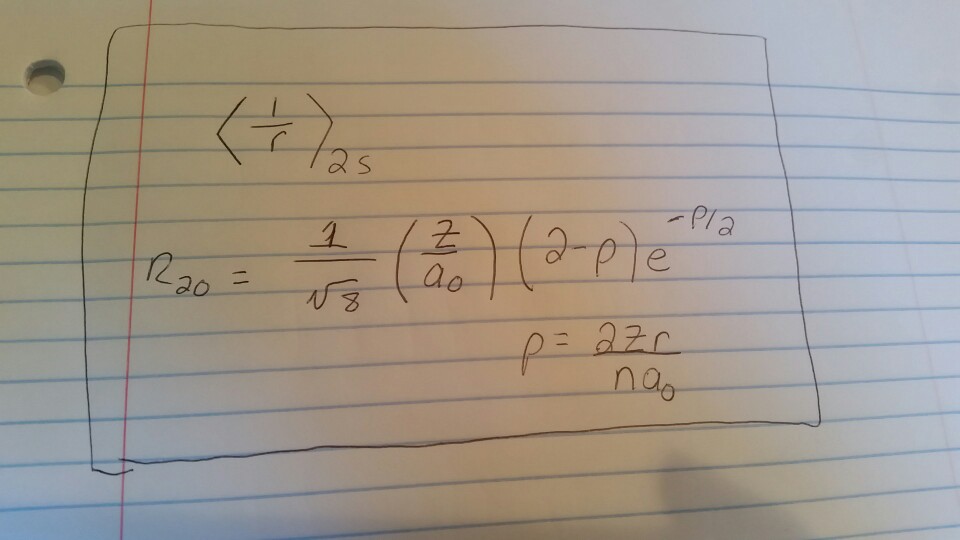 ⟨1/r⟩₂ₛ
R₂₀ = 1/√8 (Z/a₀) (2-ρ) e^(-ρ/2)
ρ = 2Zr/na₀